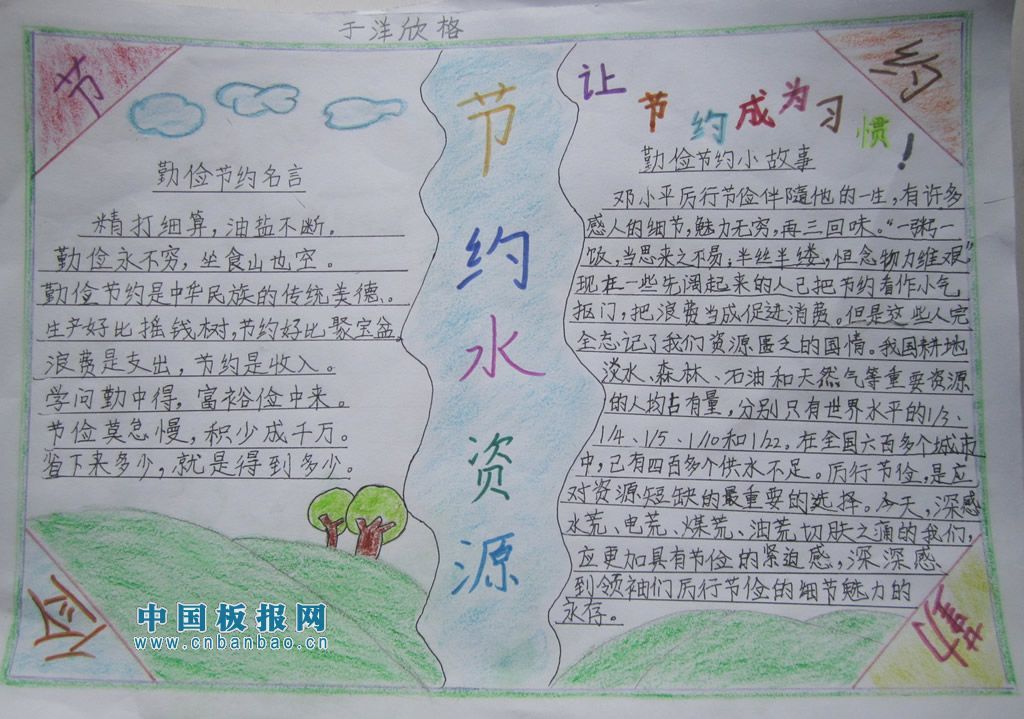 于洋欣格
节
约
俭
勤
勤俭节约名言
精打细算,油盐不断。
勤俭永不穷,坐食山也空。
勤俭节约是中华民族的传统美德。
生产好比摇钱树,节约好比聚宝盆。
浪费是支出,节约是收入。
学问勤中得,富裕俭中来。
节俭莫怠慢,积少成千万。
省下来多少,就是得到多少。
节约水资源
让节约成为习惯!
勤俭节约小故事
邓小平厉行节俭伴随他的一生,有许多
感人的细节,魅力无穷,再三回味。“一粥一
饭,当思来之不易,半丝半缕,恒念物力维艰”
现在一些先阔起来的人已把节约看作小气
抠门,把浪费当成促进消费。但是这些人完
全忘记了我们资源匮乏的国情。我国耕地
淡水、森林、石油和天然气等重要资源
的人均占有量,分别只有世界水平的1/3、
1/4、1/5、1/10和1/22。在全国六百多个城市
中,已有四百多个供水不足。厉行节俭,是应
对资源短缺的最重要的选择。今天,深感
水荒、电荒、煤荒、油荒切肤之痛的我们,
应更加具有节俭的紧迫感,深深感
到领袖们厉行节俭的细节魅力的
永存。
中国板报网
www.cnbanbao.cn